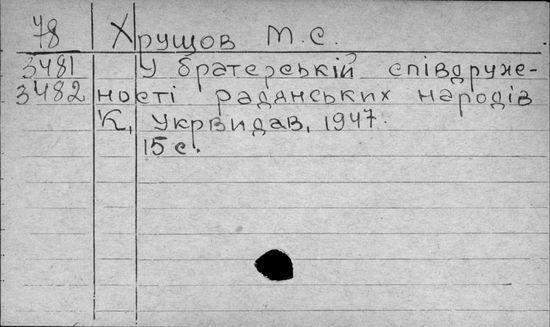 78 Хрущов М. С.
3481 У братерській співдруже-
3482 ності радянських народів
К, Укрвидав, 1947.
15 с.